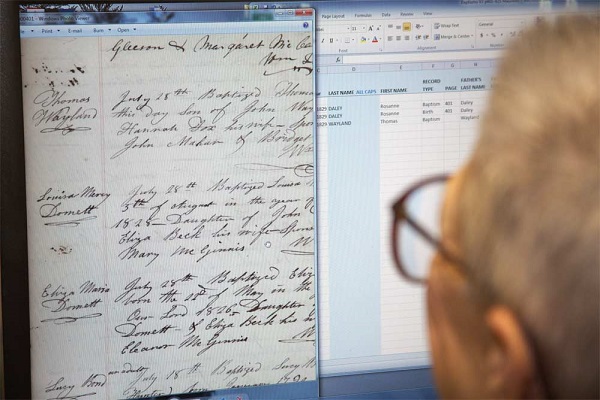 Print E-mail Burn Open
Gleeson & Margaret Mc Ca
Thomas
Wayland
July 28th Baptized Thomas
this day Son of John Way
Hannah Fox his wife Spon
John Mahar & Bridget
Louisa Mercy
Domett
July 28th Baptized Louisa
5th of August in the year of
1828 Daughter of John
Eliza Beck his wife Spons
Mary McGinnis
Eliza Maria
Domett
July 28th Baptized Eliz
born the 25th of May in the
Our Lord 1826 Daughter
Domett & Eliza Beck his
Eleanor McGinnis
Lucy Bond an adult
July 28th Baptized Lucy
Page Layout Formulas Data Review View
Wrap Text
Merge & Center
General
fx
LAST NAME ALL CAPS
FIRST NAME
RECORD
TYPE
PAGE
FATHER'S
LAST NAME
1829 DALEY Rosanne Baptism 401 Daley
1829 DALEY Rosanne Birth 401 Daley
1829 WAYLAND Thomas Baptism Wayland